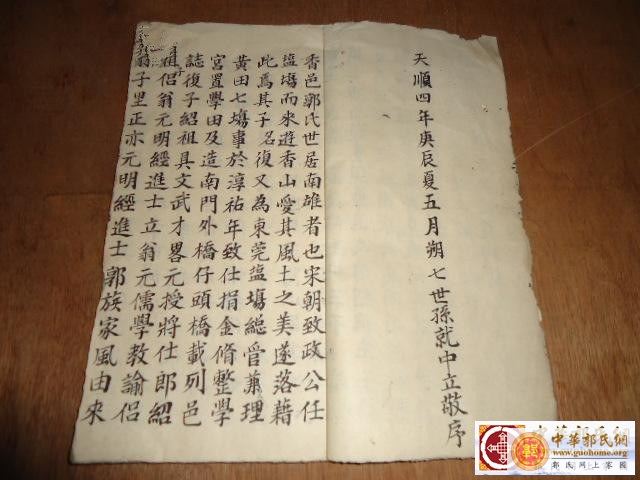 天順四年庚辰夏五月朔七世孫就中立敬序
香邑郭氏世居南雄者也宋朝致政公任
塩塲而來遊香山愛其風土之美遂落藉
此焉其子名復又為東莞塩塲總管兼理
黃田七塲事於淳祐年致仕捐金脩整學
宮置學田及造南門外橋仔頭橋載列邑
誌復子紹祖具文武才畧元授將仕郎紹
祖侶翁元明經進士立翁元儒學教諭侶
翁子里正亦元明經進士郭族家風由來
中華郭氏網
www.guohome.org
郭氏网上家園